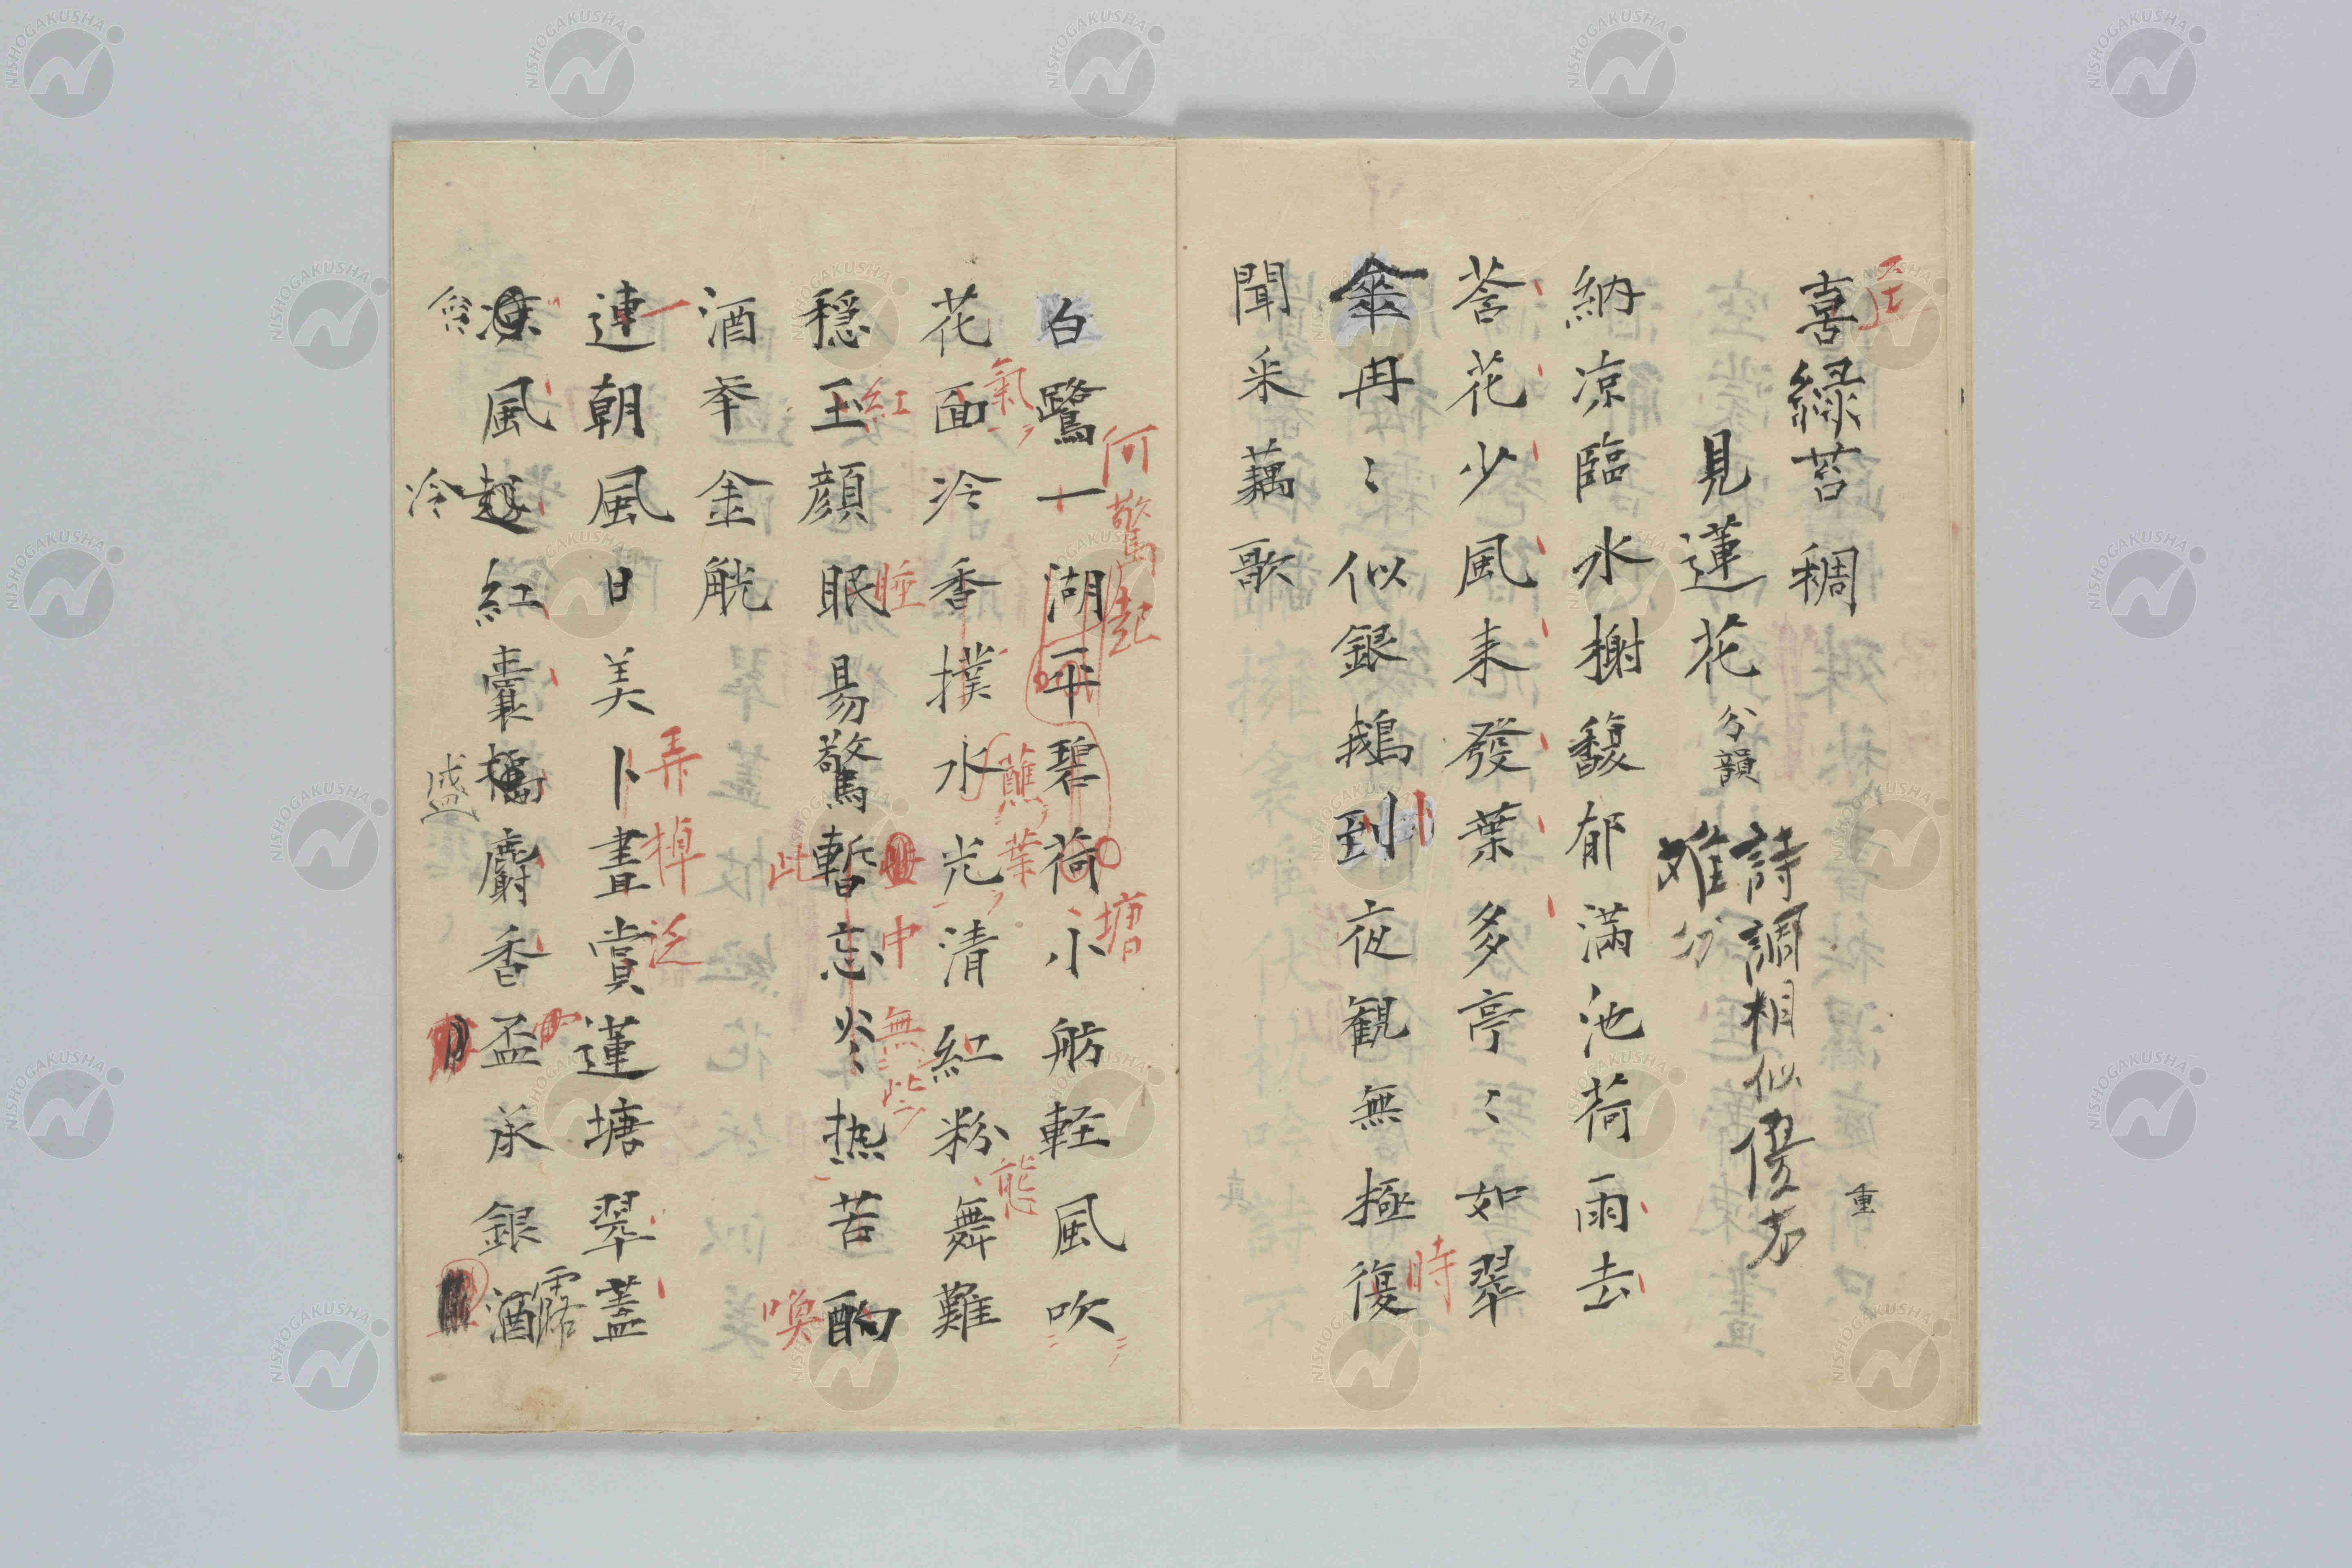 喜緑苔稠
重
見蓮花 分韻
詩調相似優劣
难分
納凉臨水榭馥郁滿池荷雨去
荅花少風来發葉多亭〻如翠
傘冉〻似銀鵝到夜観無極復
時
聞采藕歌
白鷺一湖平碧荷小舫軽風吹
何驚起
塘
花面冷香撲水光清紅粉舞難
氣
蕉葉
態
穏玉顔眠易驚暫忘炎〻热苦酌
紅
睡
中
無此
此
喚
酒奉金觥
連朝風日美卜晝賞蓮塘翠蓋
一
弄棹泛
凉風起紅囊擕麝香盃承銀酒
露
冷
盛
NISHOGAKUSHA